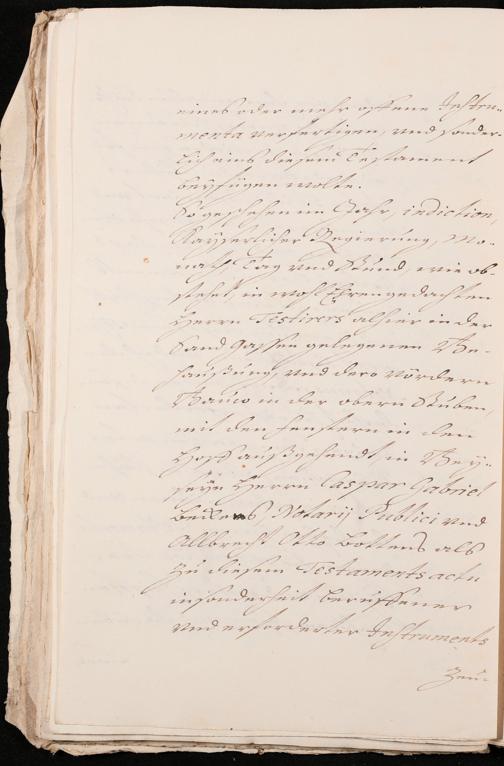 eines oder mehr offene Instru-
menta verfertigen, und sonder-
lich eins diesem Testament
beyfügen wolte.
So geschehen im Jahr, indiction,
Kayserlicher Regierung, Mo-
nath, Tag und Stund, wie ob-
stehet, in wohl Ehrengedachten
Herrn Testirers alhier in der
Sand Gassen gelegenen Be-
haußung, und dero vördern
Bauw in der obern Stuben,
mit den fenstern in den
Hoff außgehendt, in Bey-
seyn Herrn Caspar Gabriel
Notarij Publici und
Allbrecht Otto Bottens als
zu diesem Testaments actu
insonderheit beruffener
und erforderter Instruments
Zeu-